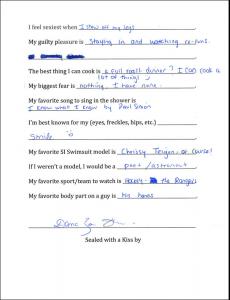 I feel sexiest when I show off my legs.
My guilty pleasure is Staying in and watching re-runs.
The best thing I can cook is a full roast dinner? I can cook a
lot of things
My biggest fear is nothing, I have none.
My favorite song to sing in the shower is
I know what I know by Paul Simon
I'm best known for my (eyes, freckles, hips, etc.)
Smile
My favorite SI Swimsuit model is Chrissy Teigen, of course!
If I weren't a model, I would be a poet/astronaut
My favorite sport/team to watch is Hockey - the Rangers
My favorite body part on a guy is his hands
Sealed with a Kiss by